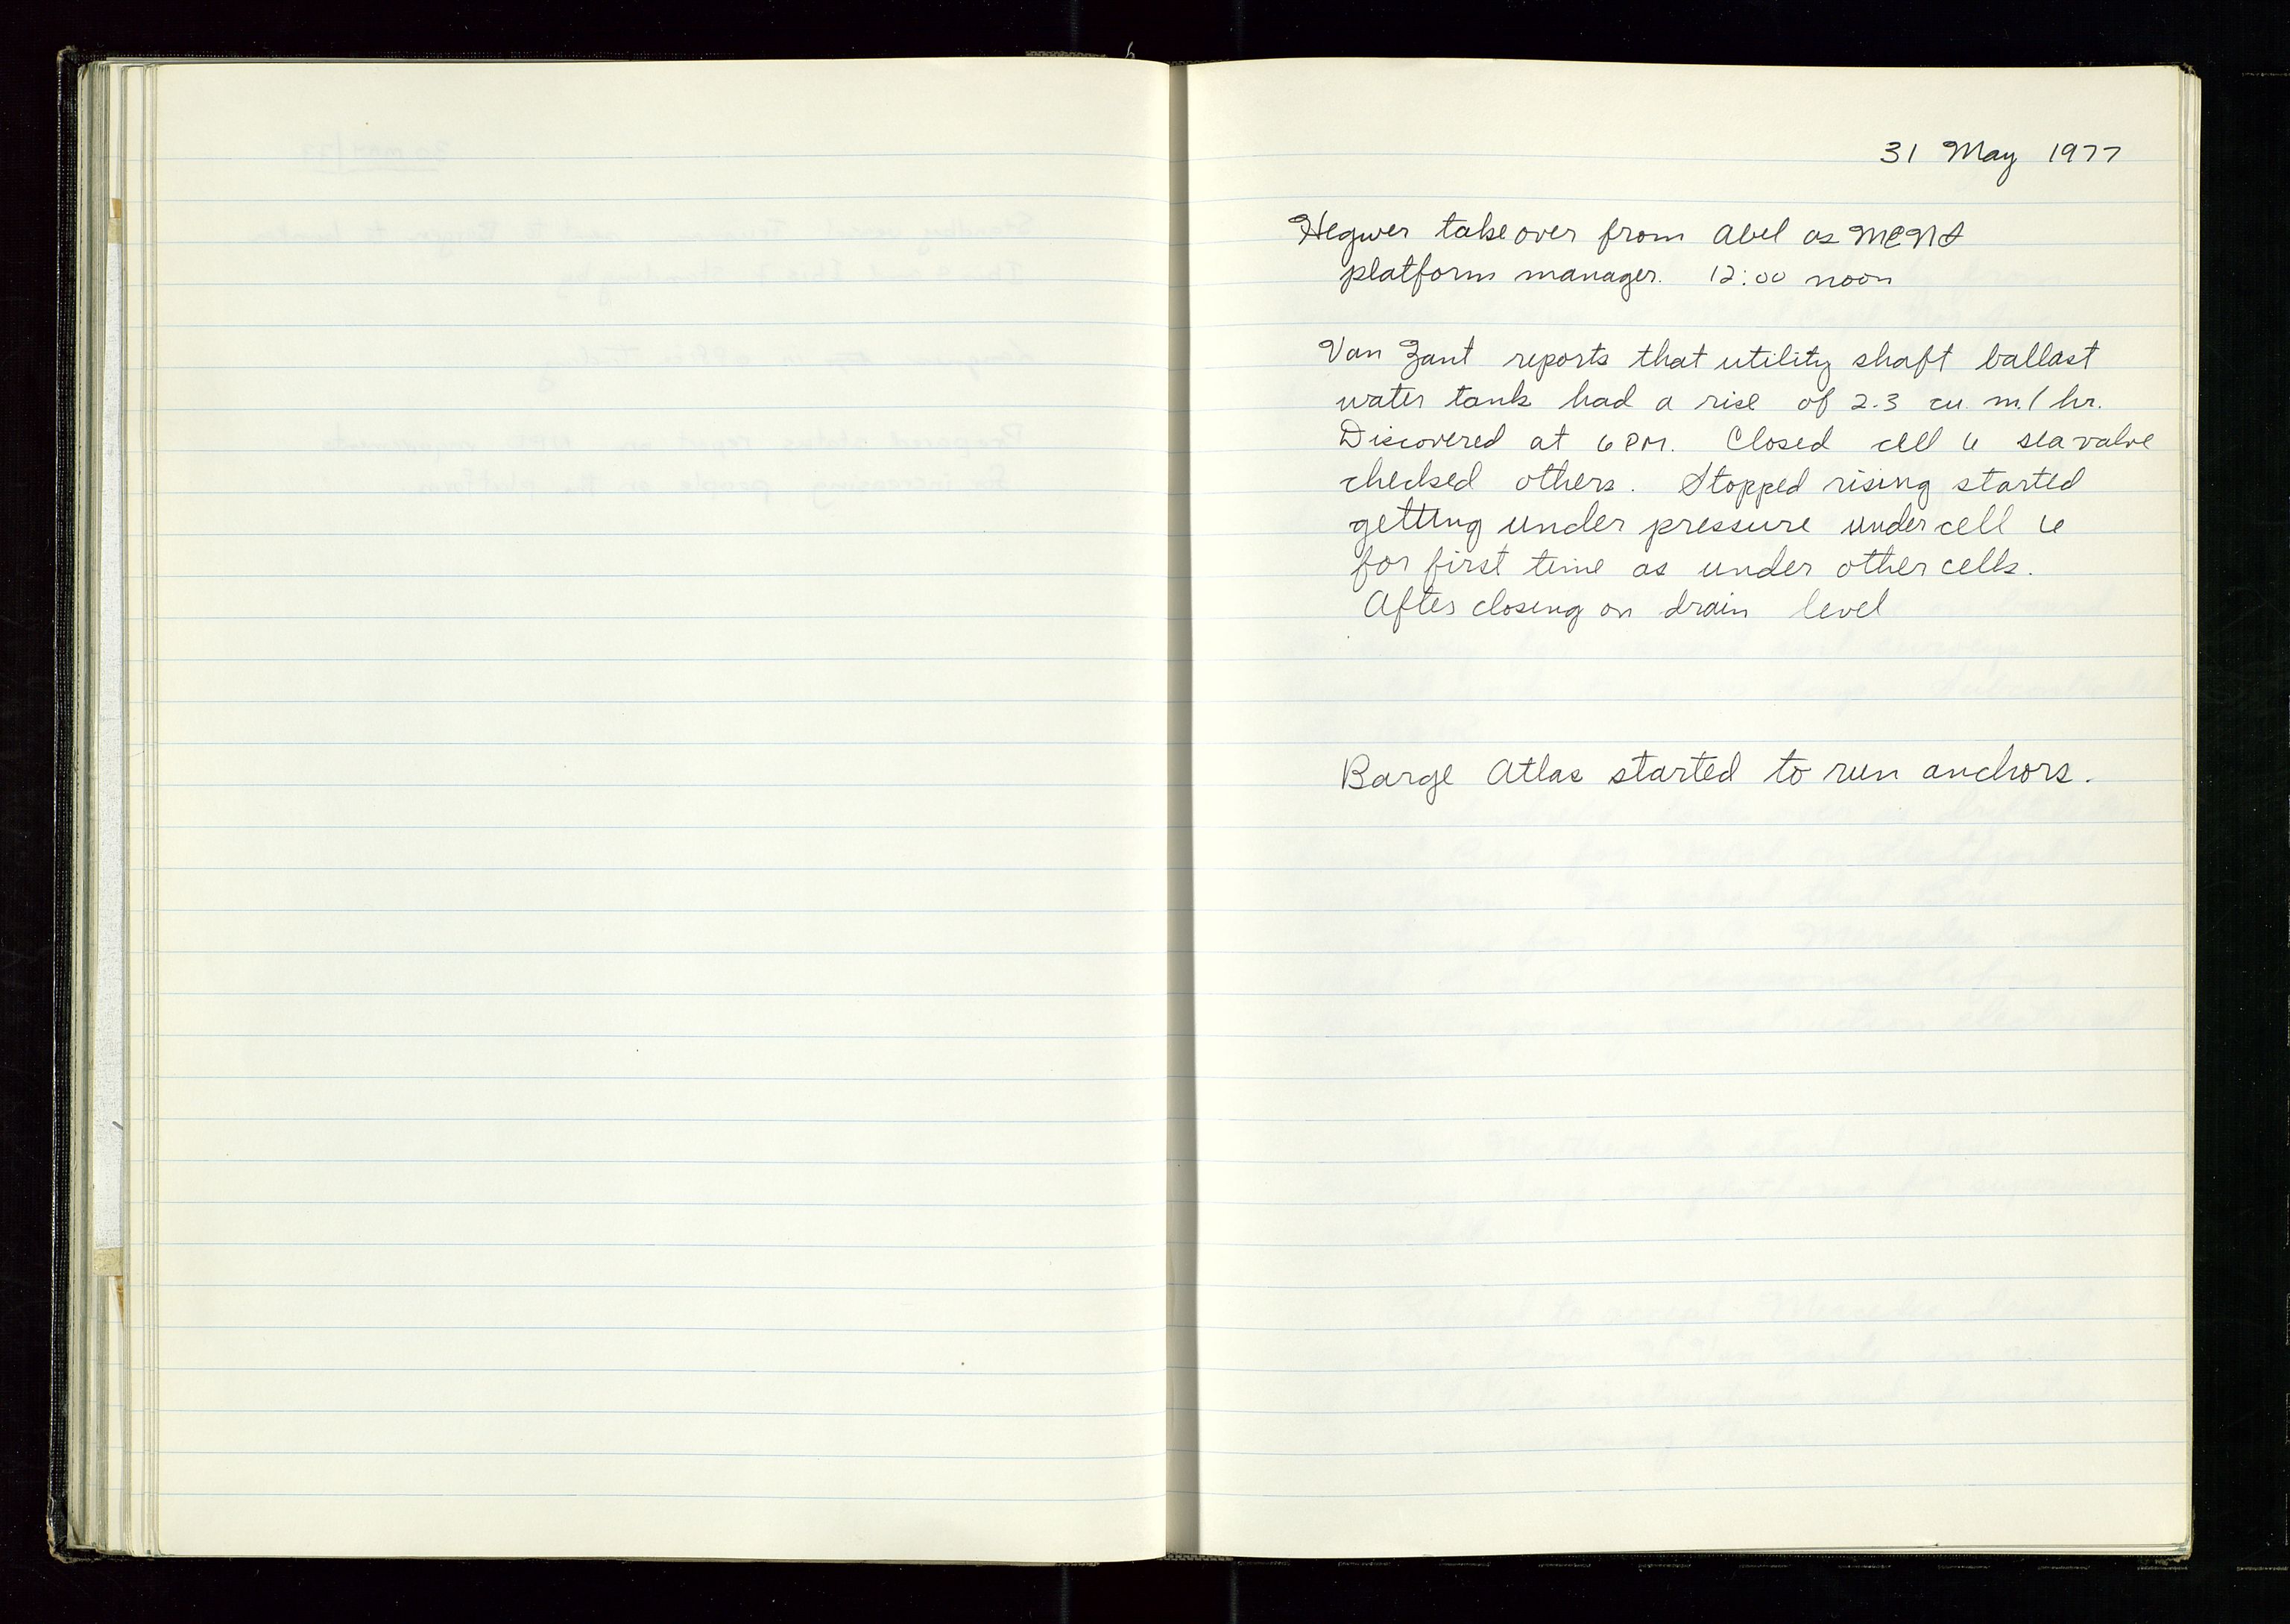 31 May 1977
Hegwer takeover from Abel as MENA
platform manager. 12:00 noon
Van Zant reports that utility shaft ballast
water tank had a rise of 2.3 cu. m./hr.
Discovered at 6 PM. Closed cell 6 sea valve
checked others. Stopped rising started
getting under pressure under cell 6
for first time as under other cells.
After closing on drain level
Barge Atlas started to run anchors.